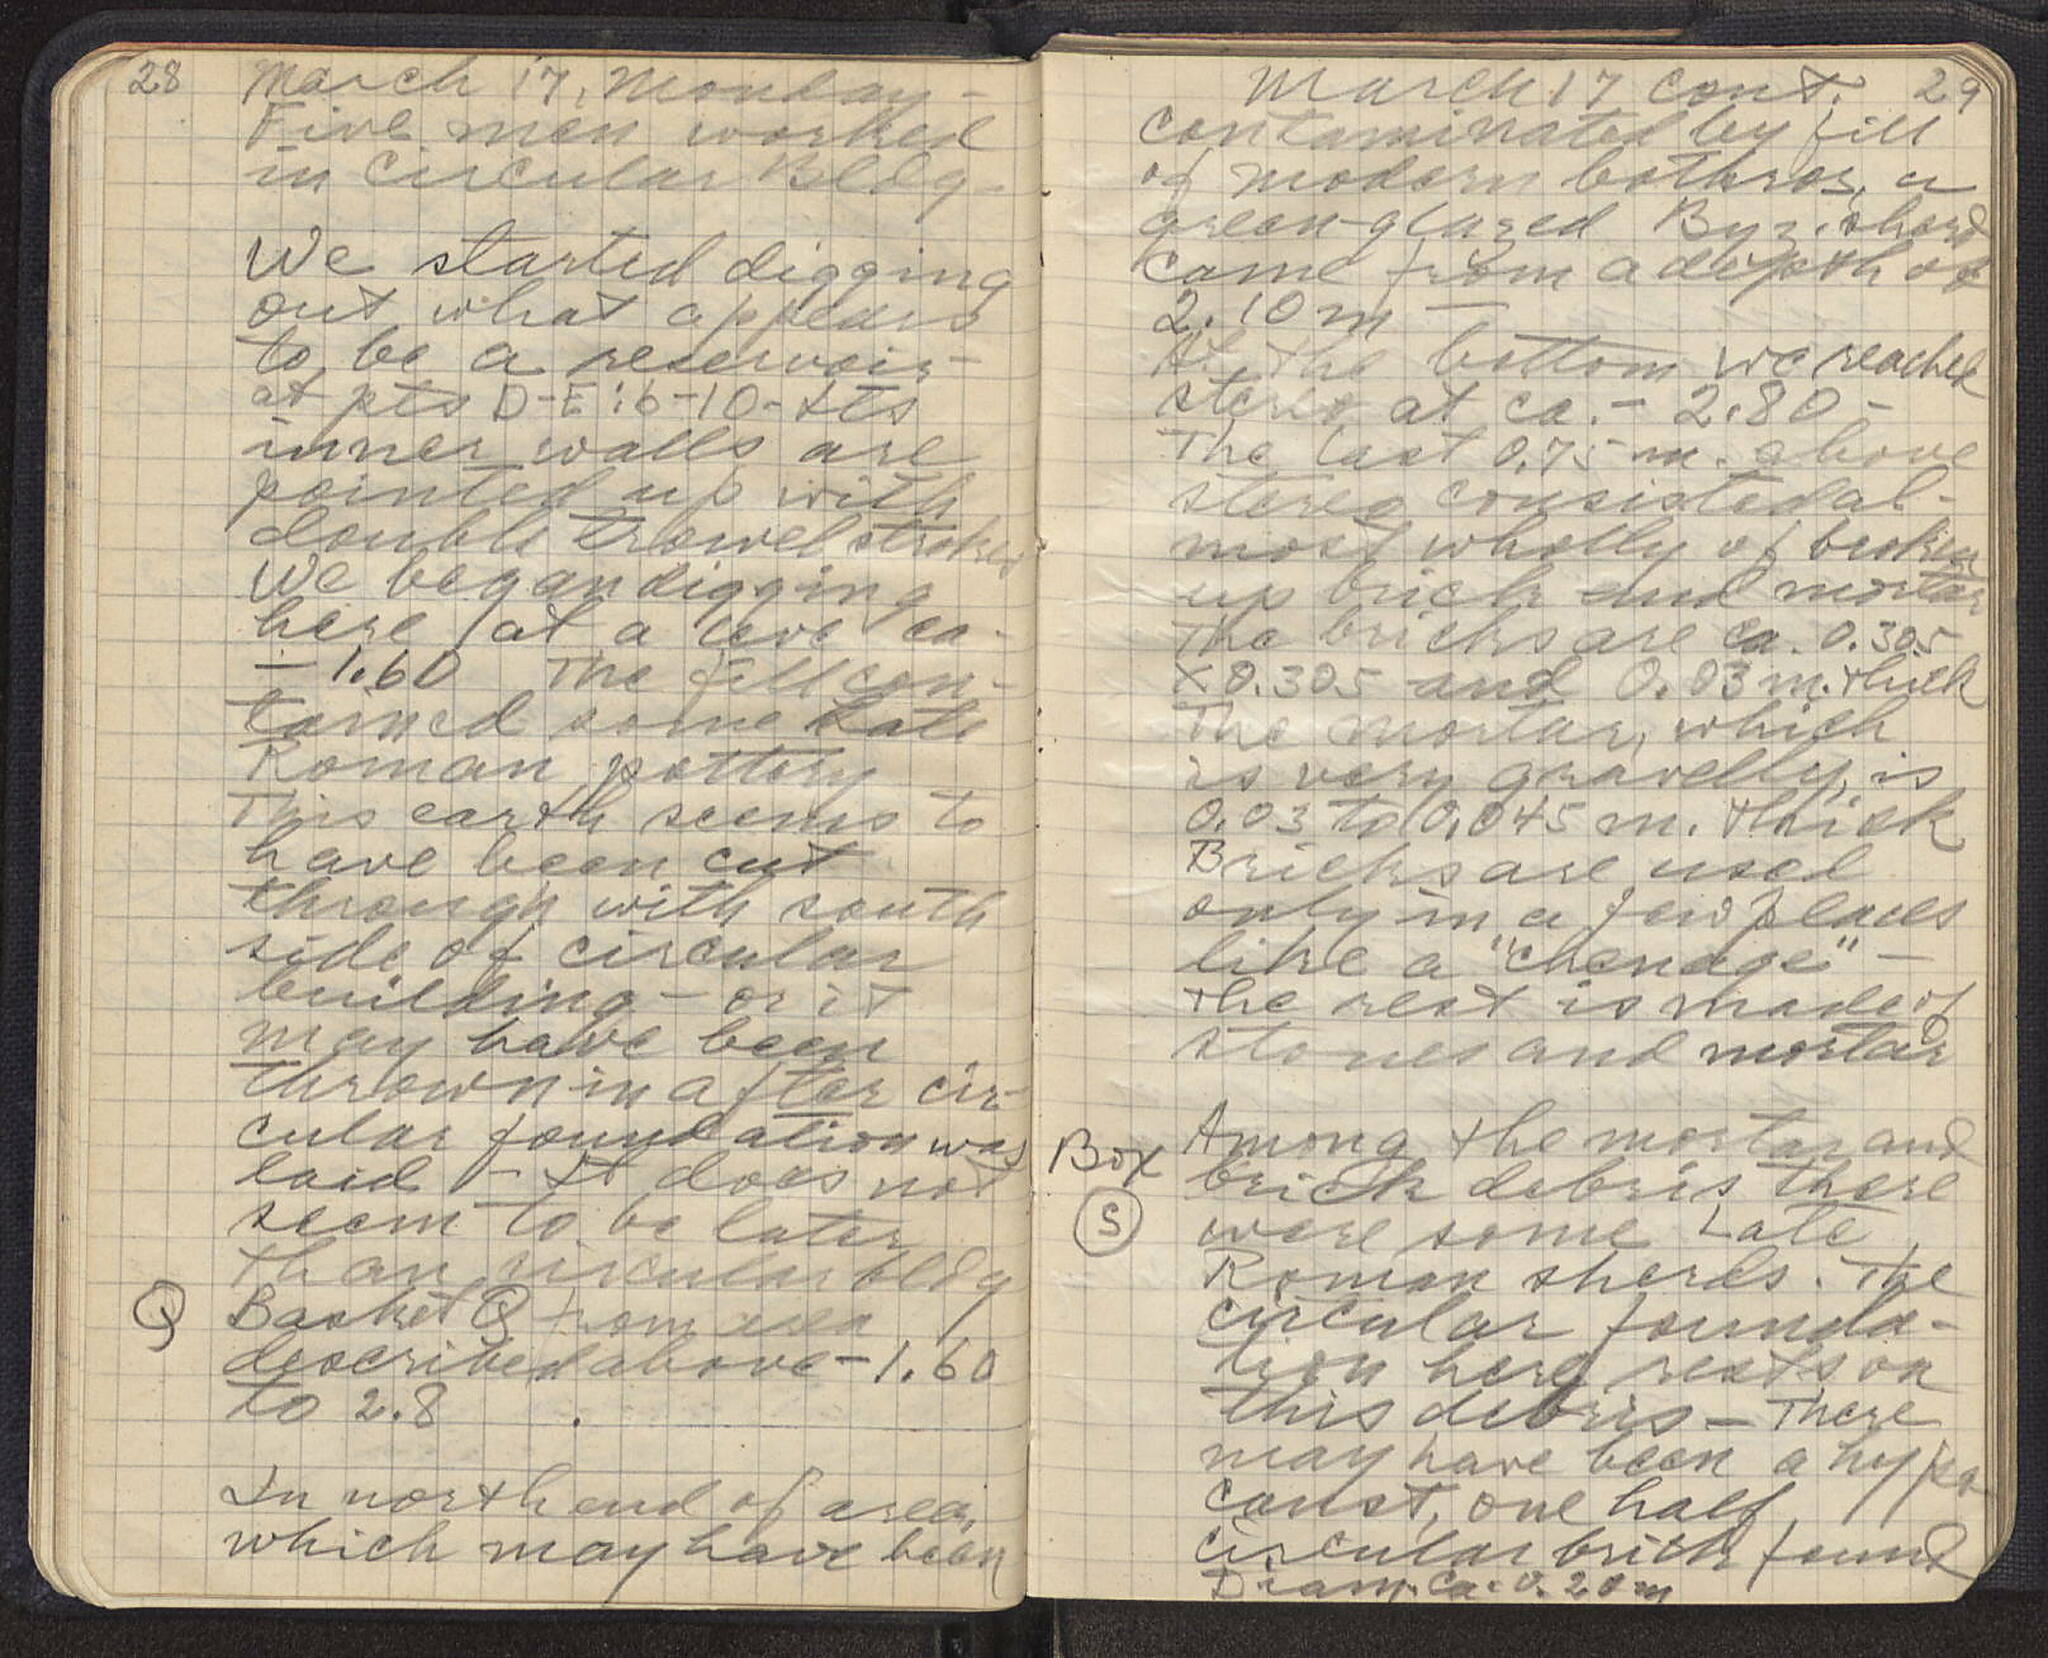 28
March 17, Monday -
Five men worked
in Circular Bldg -
We started digging
out what appears
to be a reservoir -
at pts D-E:6-10 - Its
inner walls are
pointed up with
double trowel strokes
We began digging
here at a level ca -
- 1.60 The fill con-
tained some Late
Roman pottery
This earth seems to
have been cut
through with south
side of circular
building - or it
may have been
thrown in after cir-
cular foundation was
laid - It does not
seem to be later
than circular bldg
Q Basket Q from area
described above - 1.60
to 2.8 .
In north end of area,
which may have been
March 17 cont. 29
contaminated by fill
of modern bothros, a
green-glazed Byz. sherd
came from a depth of
2.10 m -
At the bottom we reached
stereo at ca. - 2.80 -
The last 0.75 m. above
stereo consisted al-
most wholly of broken
up brick and mortar
The bricks are ca. 0.305
X 0.305 and 0.03 m. thick
The mortar, which
is very gravelly, is
0.03 to 0.045 m. thick
Bricks are used
only in a few places
like a "chenage" -
the rest is made of
stones and mortar
Box Among the mortar and
brick debris there
S were some Late
Roman sherds. The
circular founda-
tion here rests on
this debris - There
may have been a hypo
caust, one half
circular brick found
Diam. ca. 0.20 m